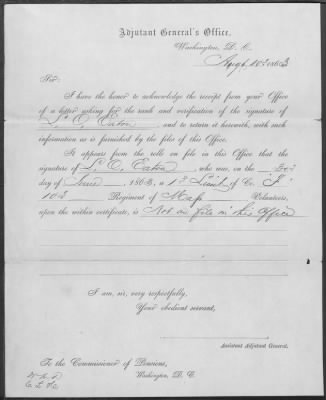 Adjutant General's Office,
Washington, D. C.
1863
Sir:
I have the honor to acknowledge the receipt from your Office
of a letter asking for the rank and verification of the signature of
L. O. Eaton, and to return it herewith, with such
information as is furnished by the files of this Office.
It appears from the rolls on file in this Office that the
signature of L. O. Eaton, who was, on the
day of June 1863, a 1st Lieut of Co. "F"
Regiment of Mass Volunteers,
upon the within certificate, is Not on file in this Office
I am, sir, very respectfully,
Your obedient servant,
Assistant Adjutant General.
To the Commissioner of Pensions,
Washington, D. C.